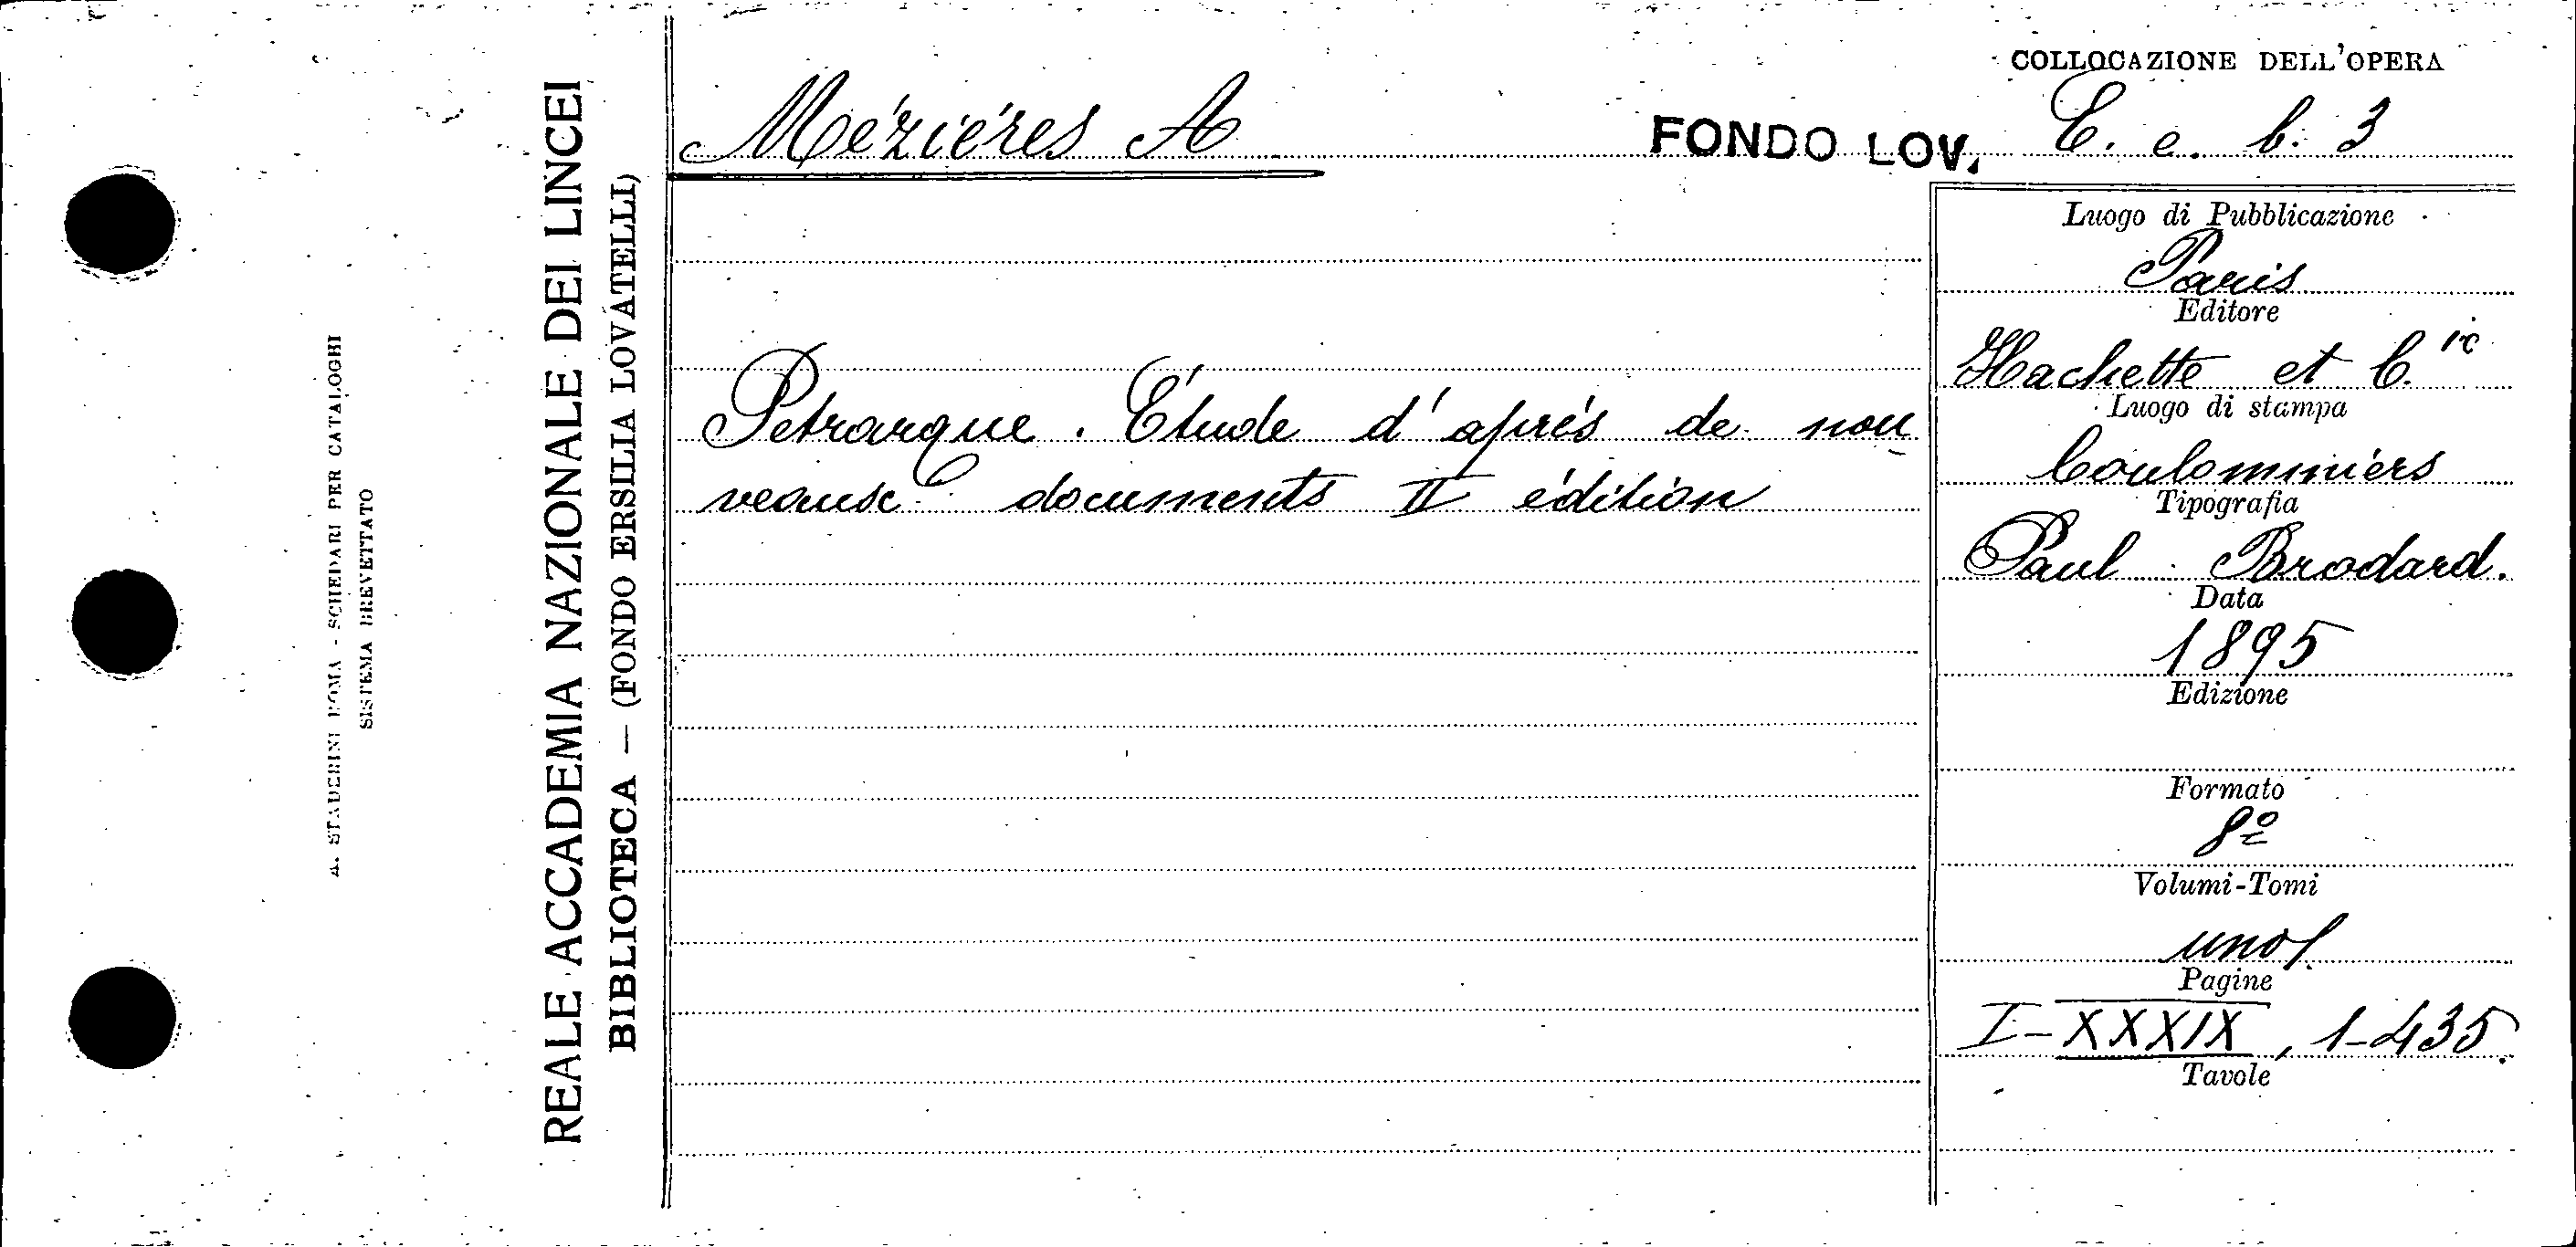 COLLOCAZIONE DELL'OPERA
Méziéres A
FONDO LOV. E. e. b. 3
Petrarque. Étude d'aprés de nou
veause documents II édition
Luogo di Pubblicazione
Paris
Editore
Hachette et C.ie
Luogo di stampa
Coulommiers
Tipografia
Paul Brodard.
Data
1895
Edizione
Formato
8º
Volumi-Tomi
uno/
Pagine
I-XXXIX, 1-435.
Tavole
REALE ACCADEMIA NAZIONALE DEI LINCEI
BIBLIOTECA — (FONDO ERSILIA LOVATELLI)
A. STADERINI ROMA - SCHEDARI PER CATALOGHI
SISTEMA BREVETTATO